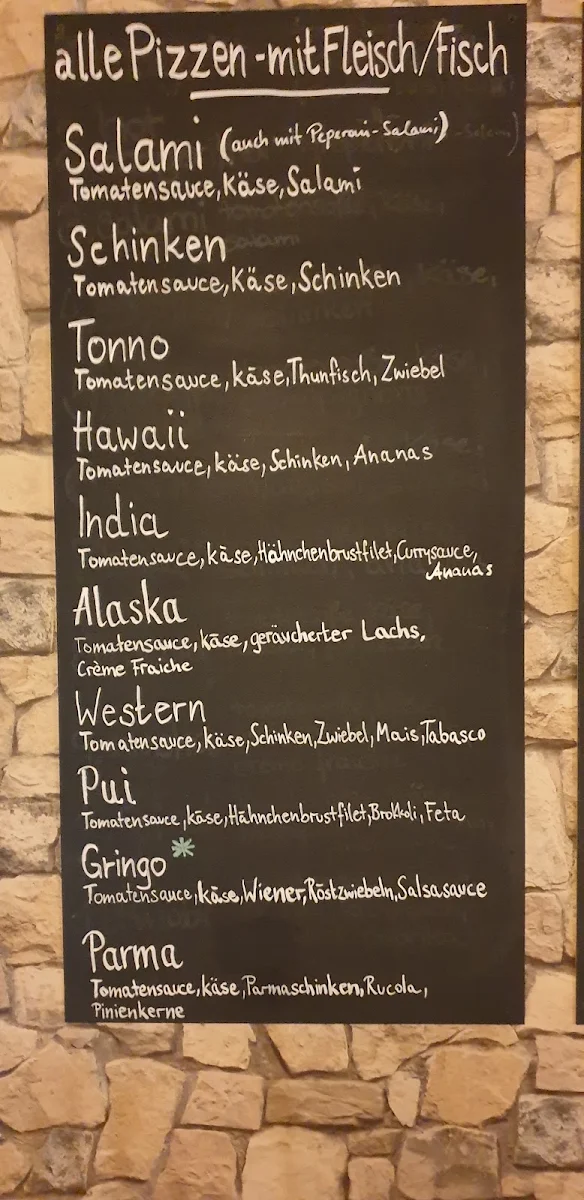 alle Pizzen - mit Fleisch/Fisch
Salami (auch mit Peperoni-Salami)
Tomatensauce, Käse, Salami
Schinken
Tomatensauce, Käse, Schinken
Tonno
Tomatensauce, Käse, Thunfisch, Zwiebel
Hawaii
Tomatensauce, käse, Schinken, Ananas
India
Tomatensauce, käse, Hähnchenbrustfilet, Currysauce,
Ananas
Alaska
Tomatensauce, käse, geräucherter Lachs,
Crème Fraiche
Western
Tomatensauce, käse, Schinken, Zwiebel, Mais, Tabasco
Pui
Tomatensauce, käse, Hähnchenbrustfilet, Brokkoli, Feta
Gringo *
Tomatensauce, käse, Wiener, Röstzwiebeln, Salsasauce
Parma
Tomatensauce, käse, Parmaschinken, Rucola,
Pinienkerne